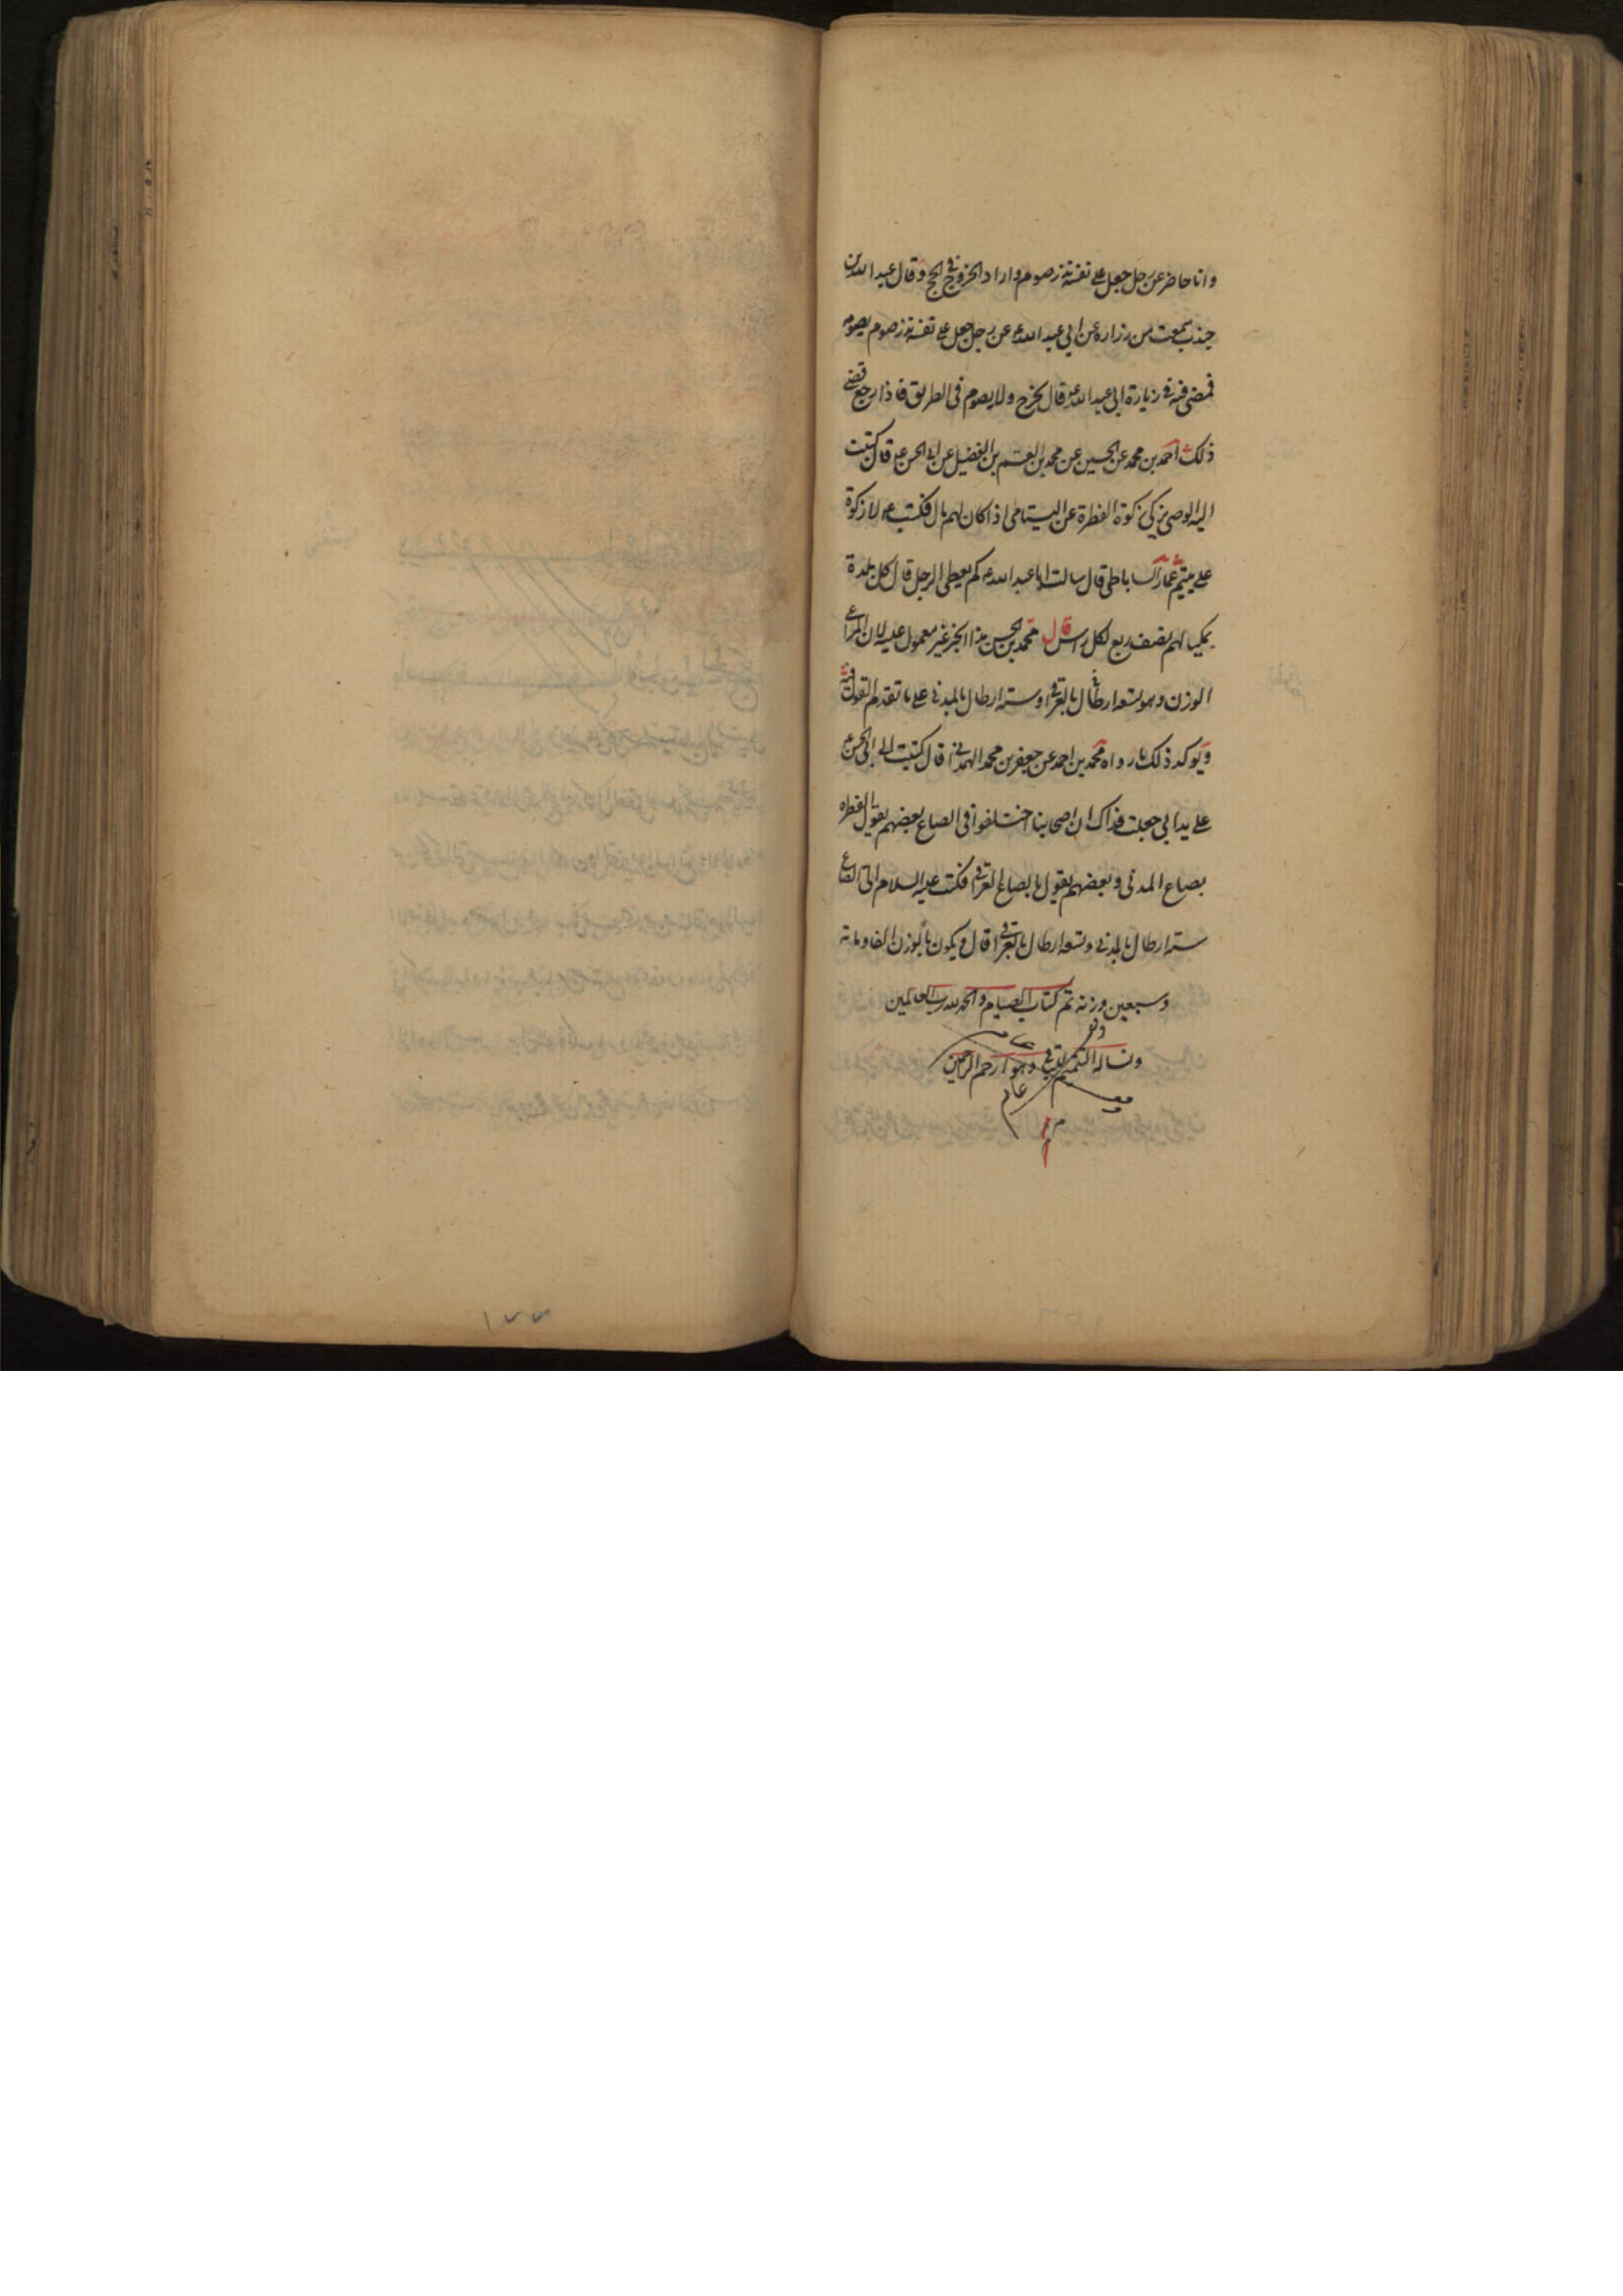 وانا حاضر عن رجل جعل على نفسه نذر صوم واراد الخروج في الحج وقال عبد الله بن
جندب سمعت من زرارة عن ابي عبد الله ع عن رجل جعل على نفسه نذر صوم يصوم
فمضى فيه في زيارة ابي عبد الله ع قال يخرج ولا يصوم في الطريق فاذا رجع قضى
ذلك احمد بن محمد عن الحسين عن محمد بن القسم بن الفضيل عن ابي الحسن ع قال كتبت
اليه الوصي يزكي زكوة الفطرة عن اليتامى اذا كان لهم مال فكتب ع لا زكوة
على يتيم عمار الساباطي قال سالت ابا عبد الله ع كم يعطى الرجل قال كل بلدة
بمكيالهم نصف ربع لكل راس قال محمد بن الحسن هذا الخبر غير معمول عليه لان المراعى
الوزن وهو تسعة ارطال بالعراقي او ستة ارطال بالمدني على ما تقدم القول فيه
ويوكد ذلك ما رواه محمد بن احمد عن جعفر بن محمد الهمداني قال كتبت الى ابي الحسن ع
على يد ابي جعلت فداك ان اصحابنا اختلفوا في الصاع بعضهم يقول الفطره
بصاع المدني وبعضهم يقول بالصاع العراقي فكتب عليه السلام الي الصاع
ستة ارطال بالمدني وتسعة ارطال بالعراقي قال ويكون بالوزن الفا ومائة
وسبعين وزنه تم كتاب الصيام والحمد لله رب العالمين
ونساله التتميم للباقي وهو ارحم الراحمين
١٧٧